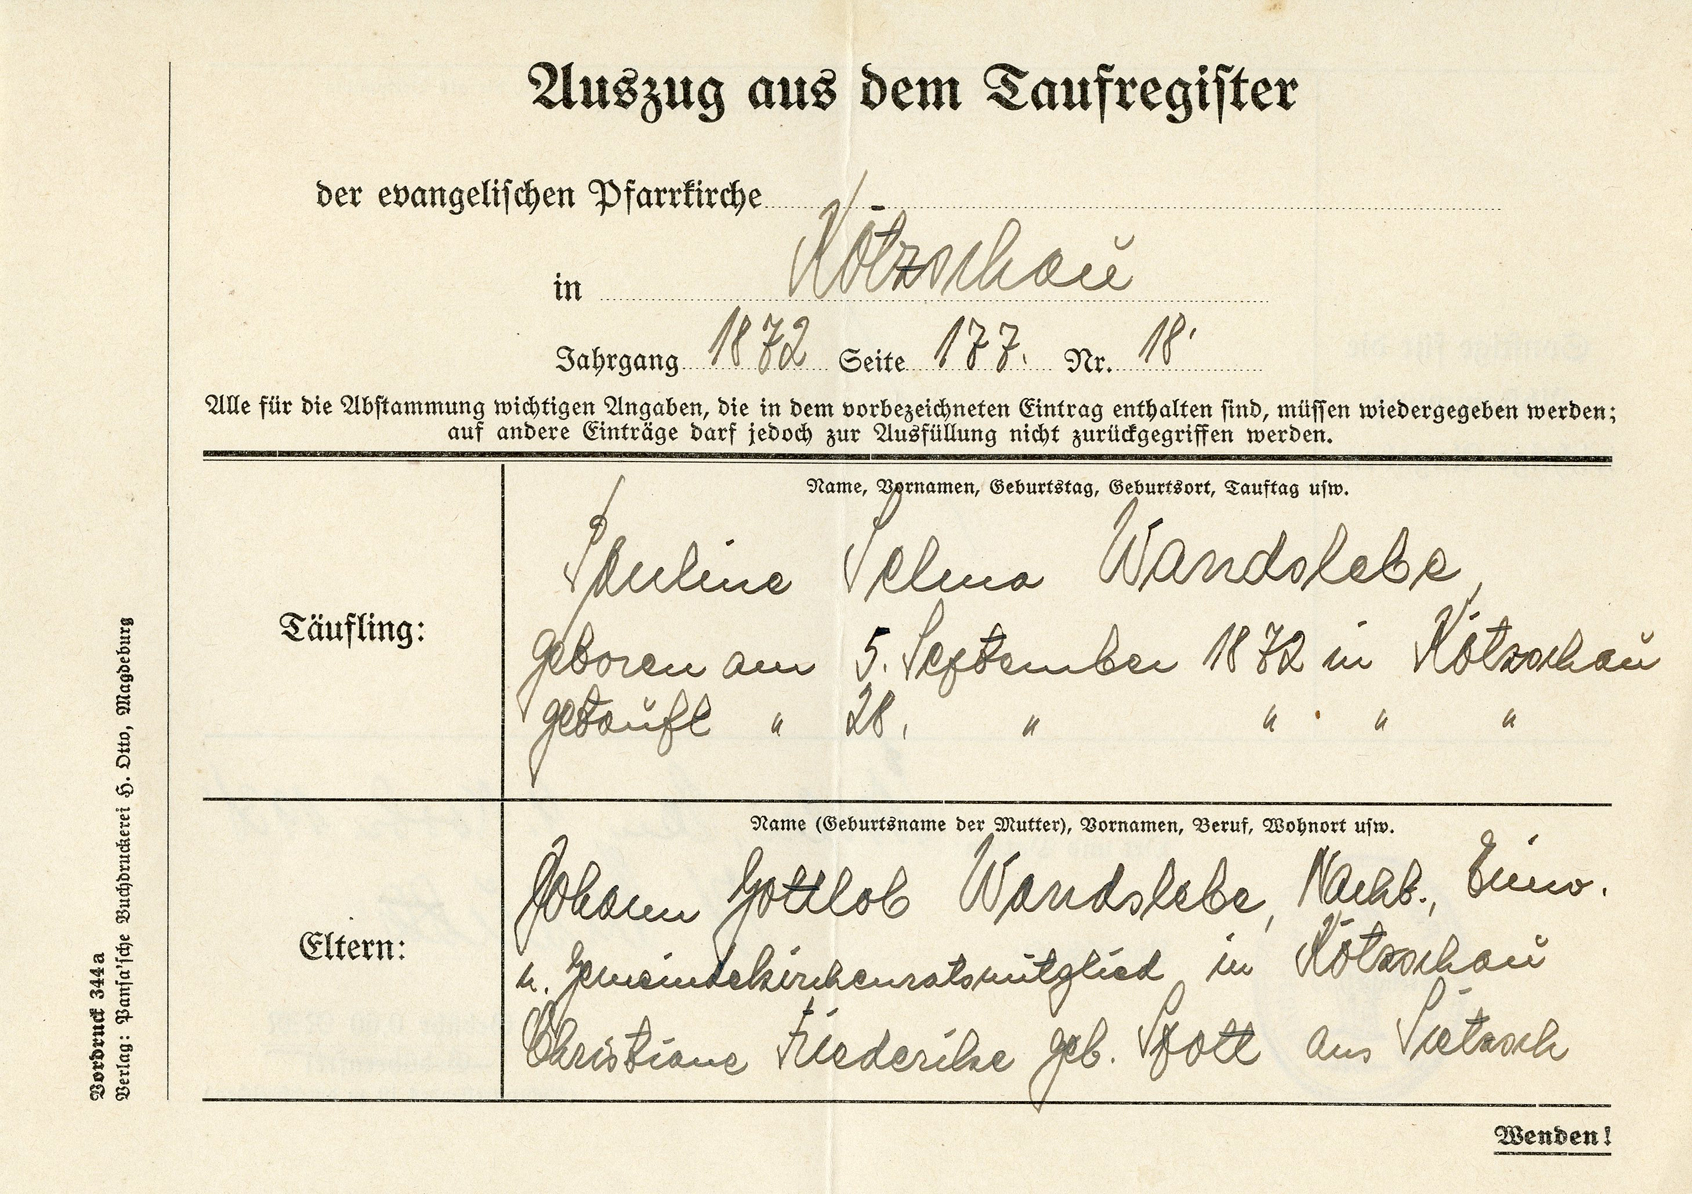 Auszug aus dem Taufregister
der evangelischen Pfarrkirche
in Kötzschau
Jahrgang 1872 Seite 177. Nr. 18.
Alle für die Abstammung wichtigen Angaben, die in dem vorbezeichneten Eintrag enthalten sind, müssen wiedergegeben werden;
auf andere Einträge darf jedoch zur Ausfüllung nicht zurückgegriffen werden.
Täufling:
Name, Vornamen, Geburtstag, Geburtsort, Tauftag usw.
Pauline Selma Wandslebe,
geboren am 5. September 1872 in Kötzschau
getauft " 28. " " " "
Eltern:
Name (Geburtsname der Mutter), Vornamen, Beruf, Wohnort usw.
Johann Gottlob Wandslebe, Nachb., Einw.
u. Gemeindekirchenratsmitglied in Kötzschau
Christiane Friederike geb. Spott aus Sietzsch
Wenden!
Vordruck 344a
Verlag: Pansa'sche Buchdruckerei H. Otto, Magdeburg